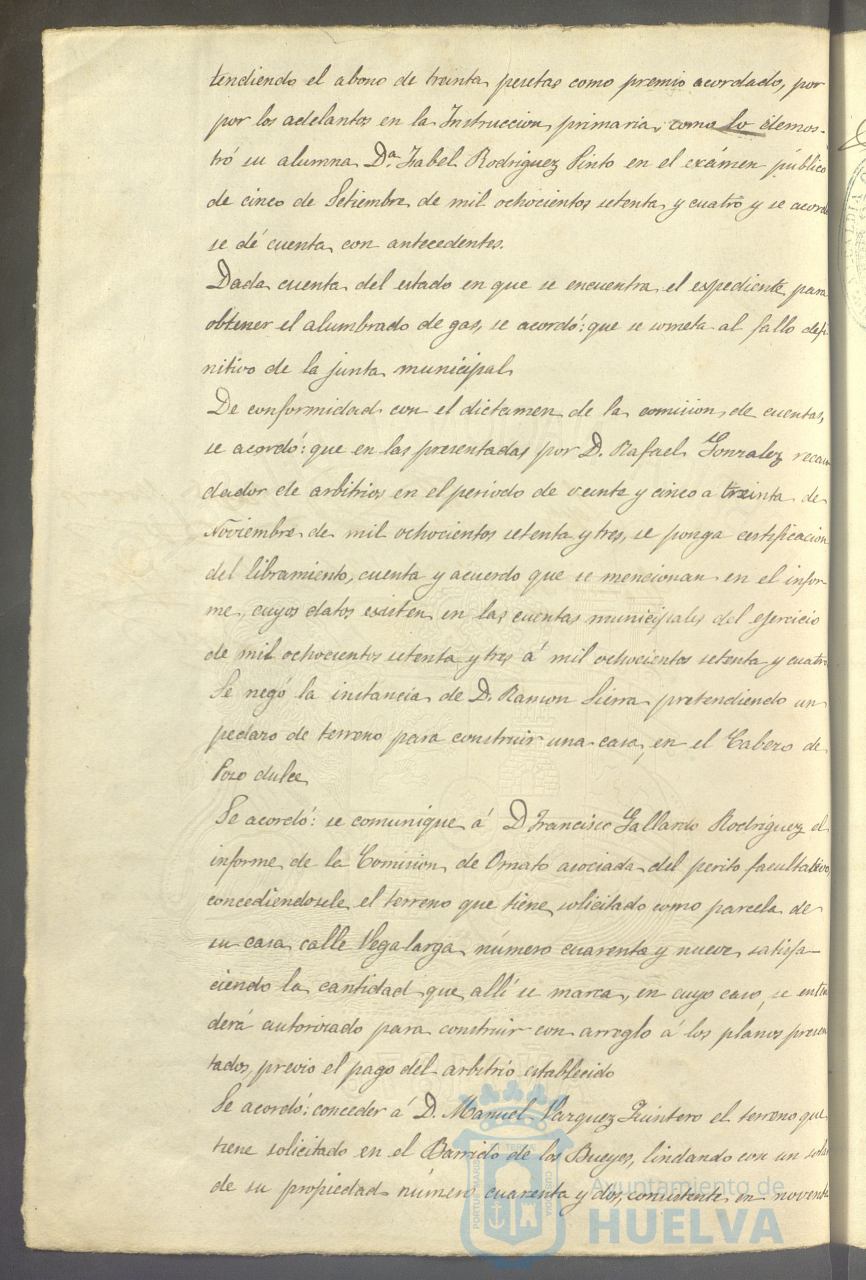 tendiendo el abono de treinta pesetas como premio acordado, por
por los adelantos en la Instruccion primaria, como lo demos-
tró su alumna D.ª Isabel Rodriguez Pinto en el exámen público
de cinco de Setiembre de mil ochocientos setenta y cuatro y se acordó
se dé cuenta con antecedentes.
Dada cuenta del estado en que se encuentra el espediente para
obtener el alumbrado de gas, se acordó: que se someta al fallo defi-
nitivo de la junta municipal
De conformidad con el dictamen de la comision de cuentas,
se acordó: que en las presentadas por D. Rafael Gonzalez recau
dador de arbitrios en el periodo de veinte y cinco a treinta de
Noviembre de mil ochocientos setenta y tres, se ponga certificacion
del libramiento, cuenta y acuerdo que se mencionan en el infor-
me, cuyos datos existen en las cuentas municipales del ejercicio
de mil ochocientos setenta y tres á mil ochocientos setenta y cuatro
Se negó la instancia de D. Ramon Sierra pretendiendo un
pedazo de terreno para construir una casa en el Cabezo de
Pozo dulce
Se acordó: se comunique á D Francisco Gallardo Rodriguez el
informe de la Comision de Ornato asociada del perito facultativo,
concediendosele el terreno que tiene solicitado como parcela de
su casa calle Vegalarga número cuarenta y nueve satisfa-
ciendo la cantidad que allí se marca, en cuyo caso se enten
derá autorizado para construir con arreglo á los planos presen
tados, previo el pago del arbitrio establecido
Se acordó: conceder á D. Manuel Vazquez Quintero el terreno que
tiene solicitado en el Barrido de los Bueyes, lindando con un solar
de su propiedad número cuarenta y dos, consistente en noventa
Ayuntamiento de
HUELVA